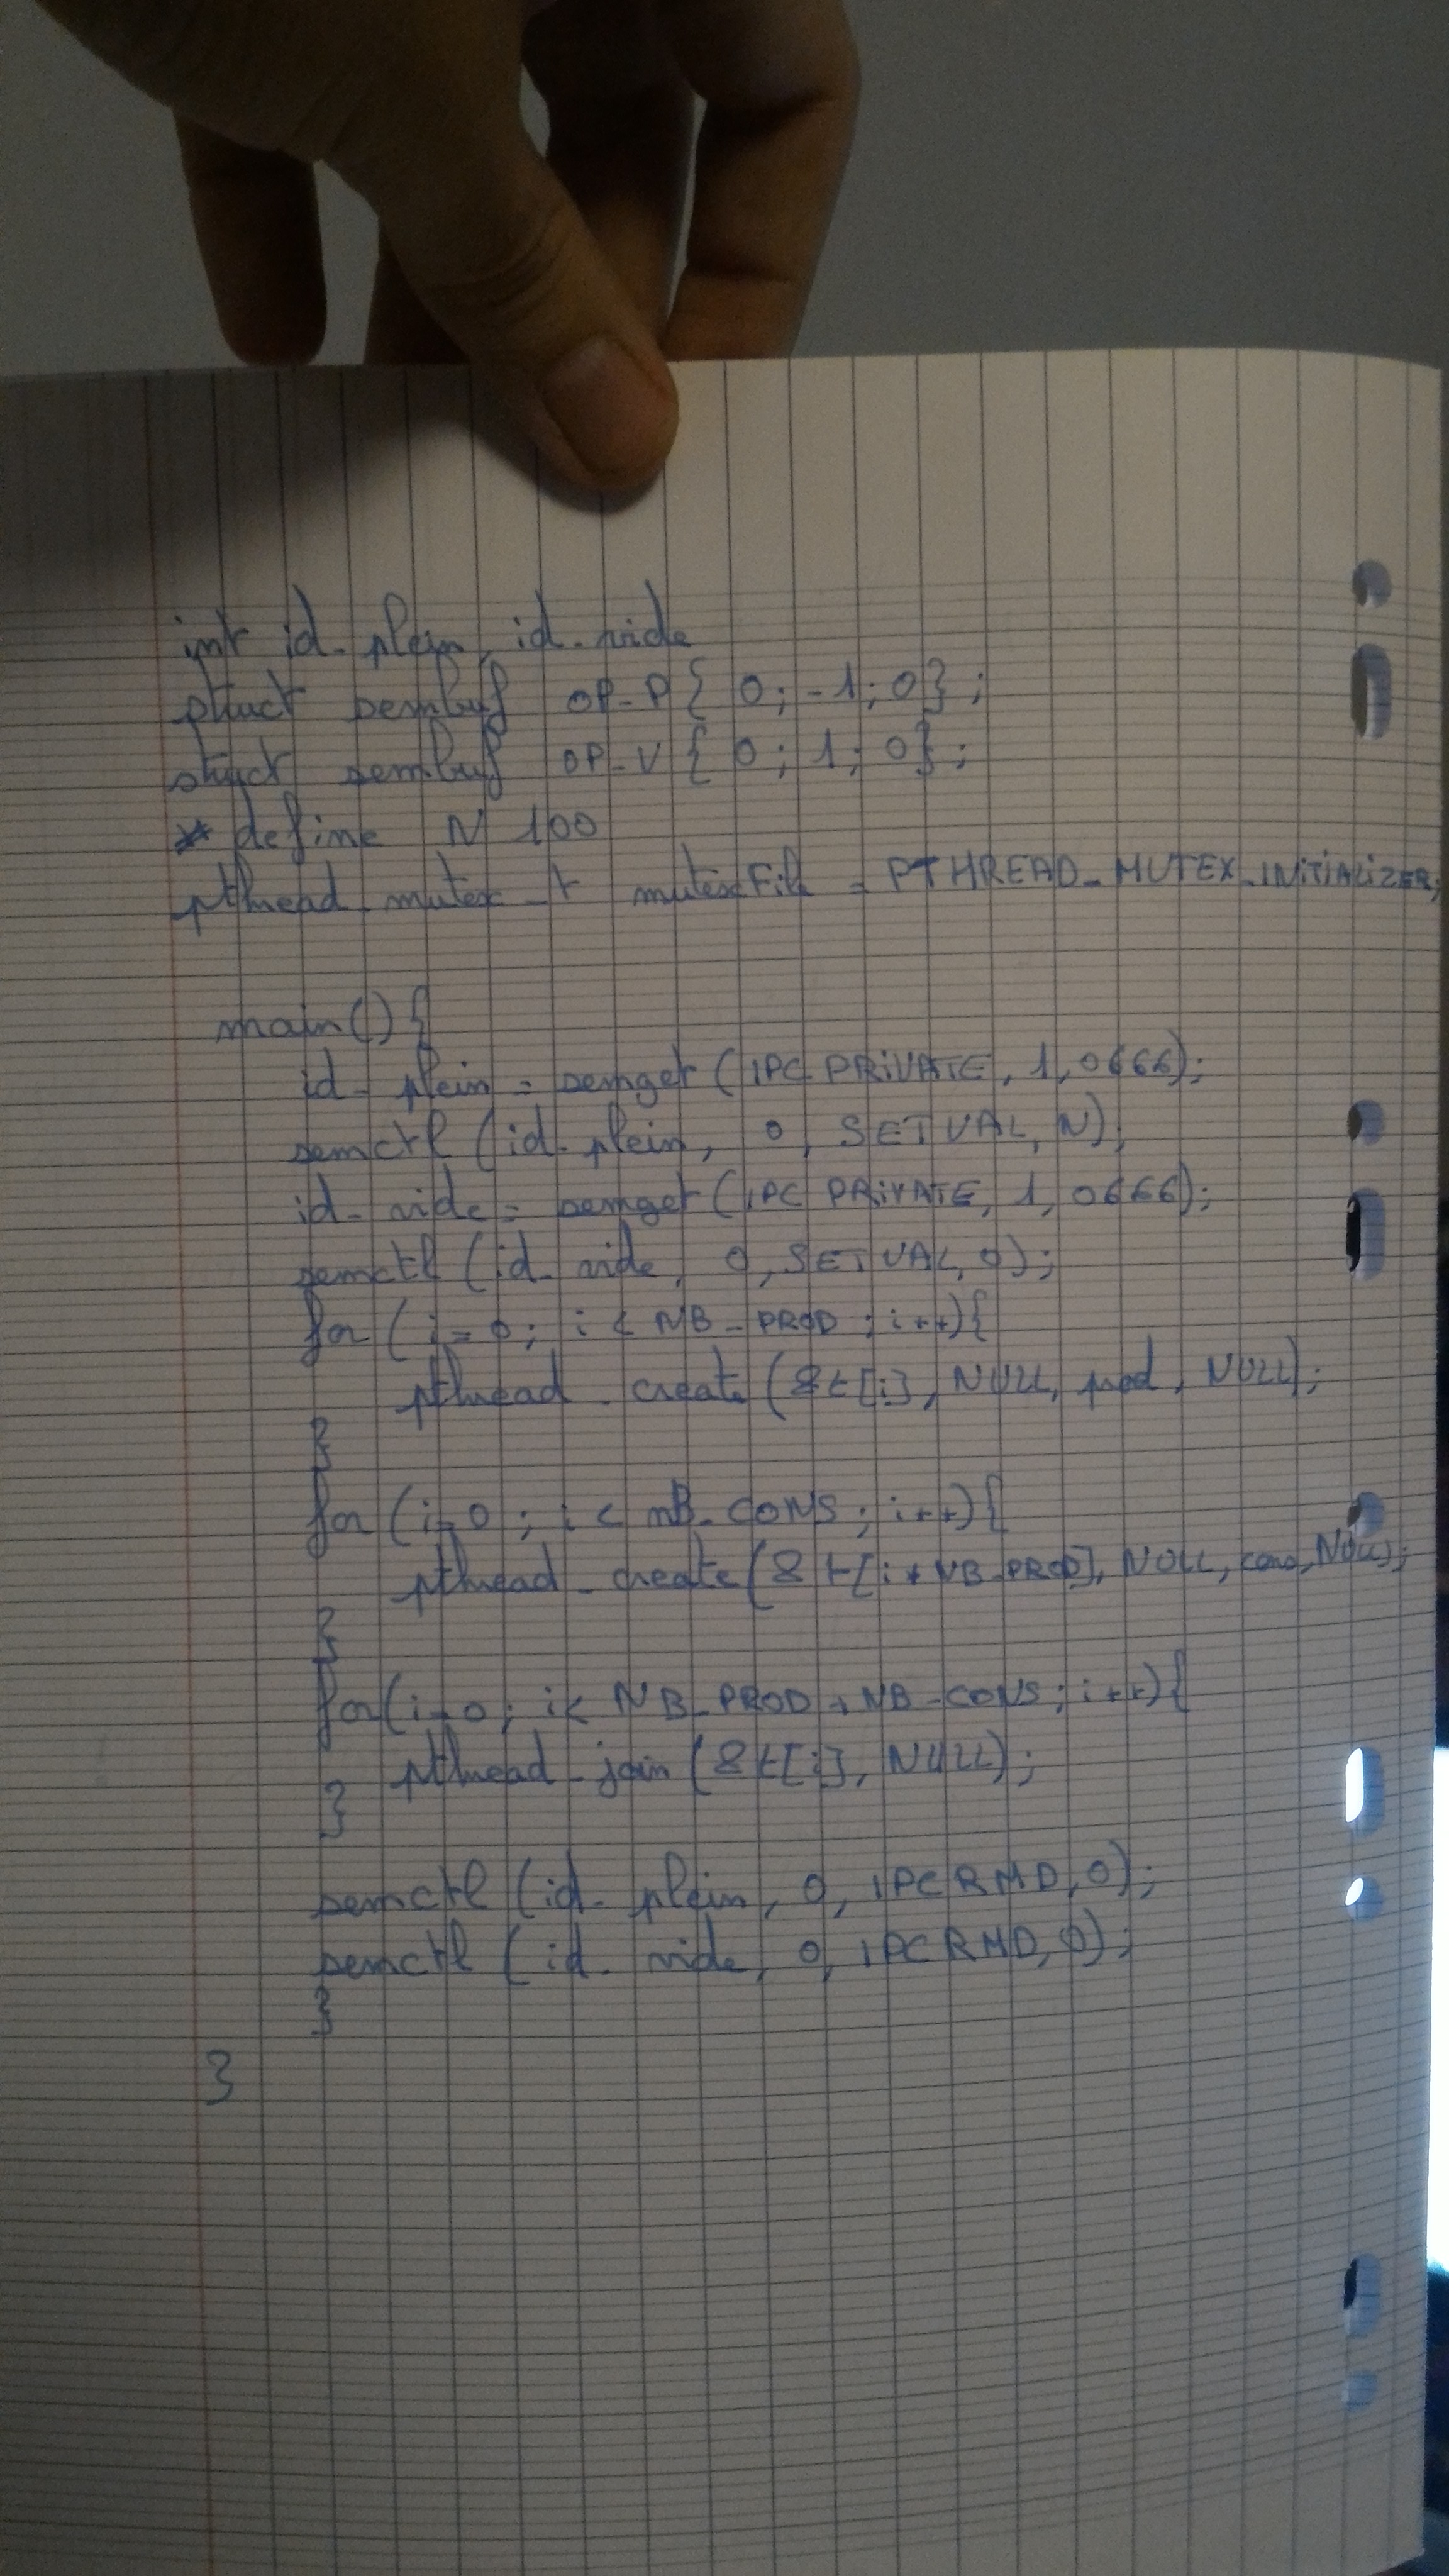 int id_plein, id_vide
struct sembuf OP_P { 0 ; -1 ; 0 } ;
struct sembuf OP_V { 0 ; 1 ; 0 } ;
# define N 100
pthread_mutex_t mutexFile = PTHREAD_MUTEX_INITIALIZER;
main() {
id_plein = semget (IPC PRIVATE, 1, 0666);
semctl (id_plein, 0, SETVAL, N);
id_vide = semget (IPC PRIVATE, 1, 0666);
semctl (id_vide, 0, SETVAL, 0);
for (i = 0 ; i < NB_PROD ; i++){
pthread_create (&t[i], NULL, prod, NULL);
}
for (i=0 ; i < nB_CONS ; i++){
pthread_create (&t[i+NB_PROD], NULL, cons, NULL);
}
for (i=0 ; i< NB_PROD + NB_CONS ; i++){
pthread_join (&t[i], NULL);
}
semctl (id_plein, 0, IPCRMD, 0);
semctl (id_vide, 0, IPCRMD, 0);
}
}